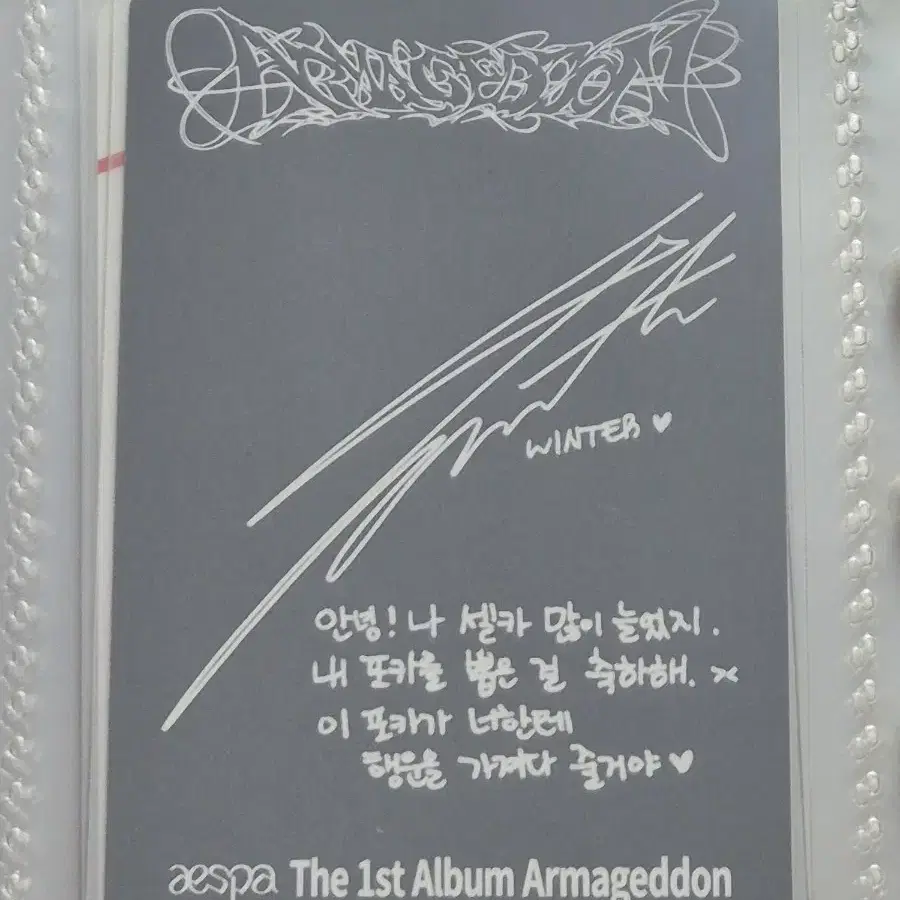 ARMAGEDDON
WINTER ♥
안녕! 나 셀카 많이 늘었지.
내 포카를 뽑은 걸 축하해. ><
이 포카가 너한테
행운을 가져다 줄거야 ♥
aespa The 1st Album Armageddon